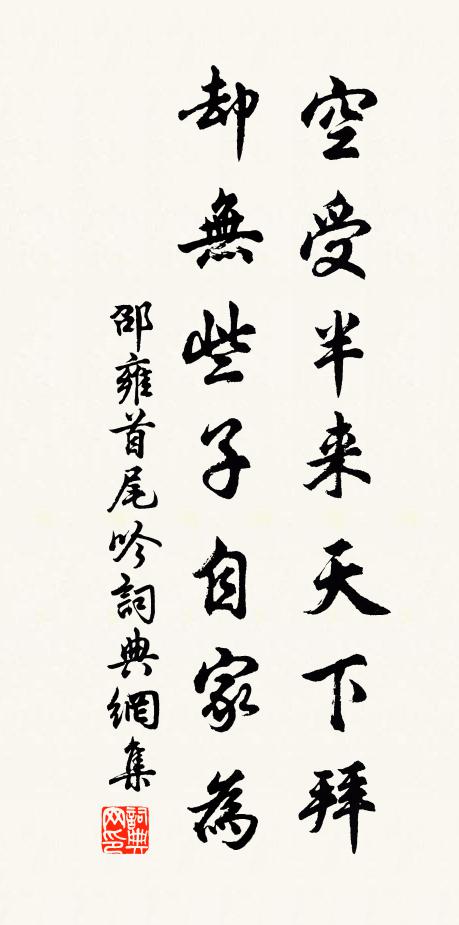 空受半来天下拜
却無些子自家為
邵雍首尾吟詞典網集
詞典网印